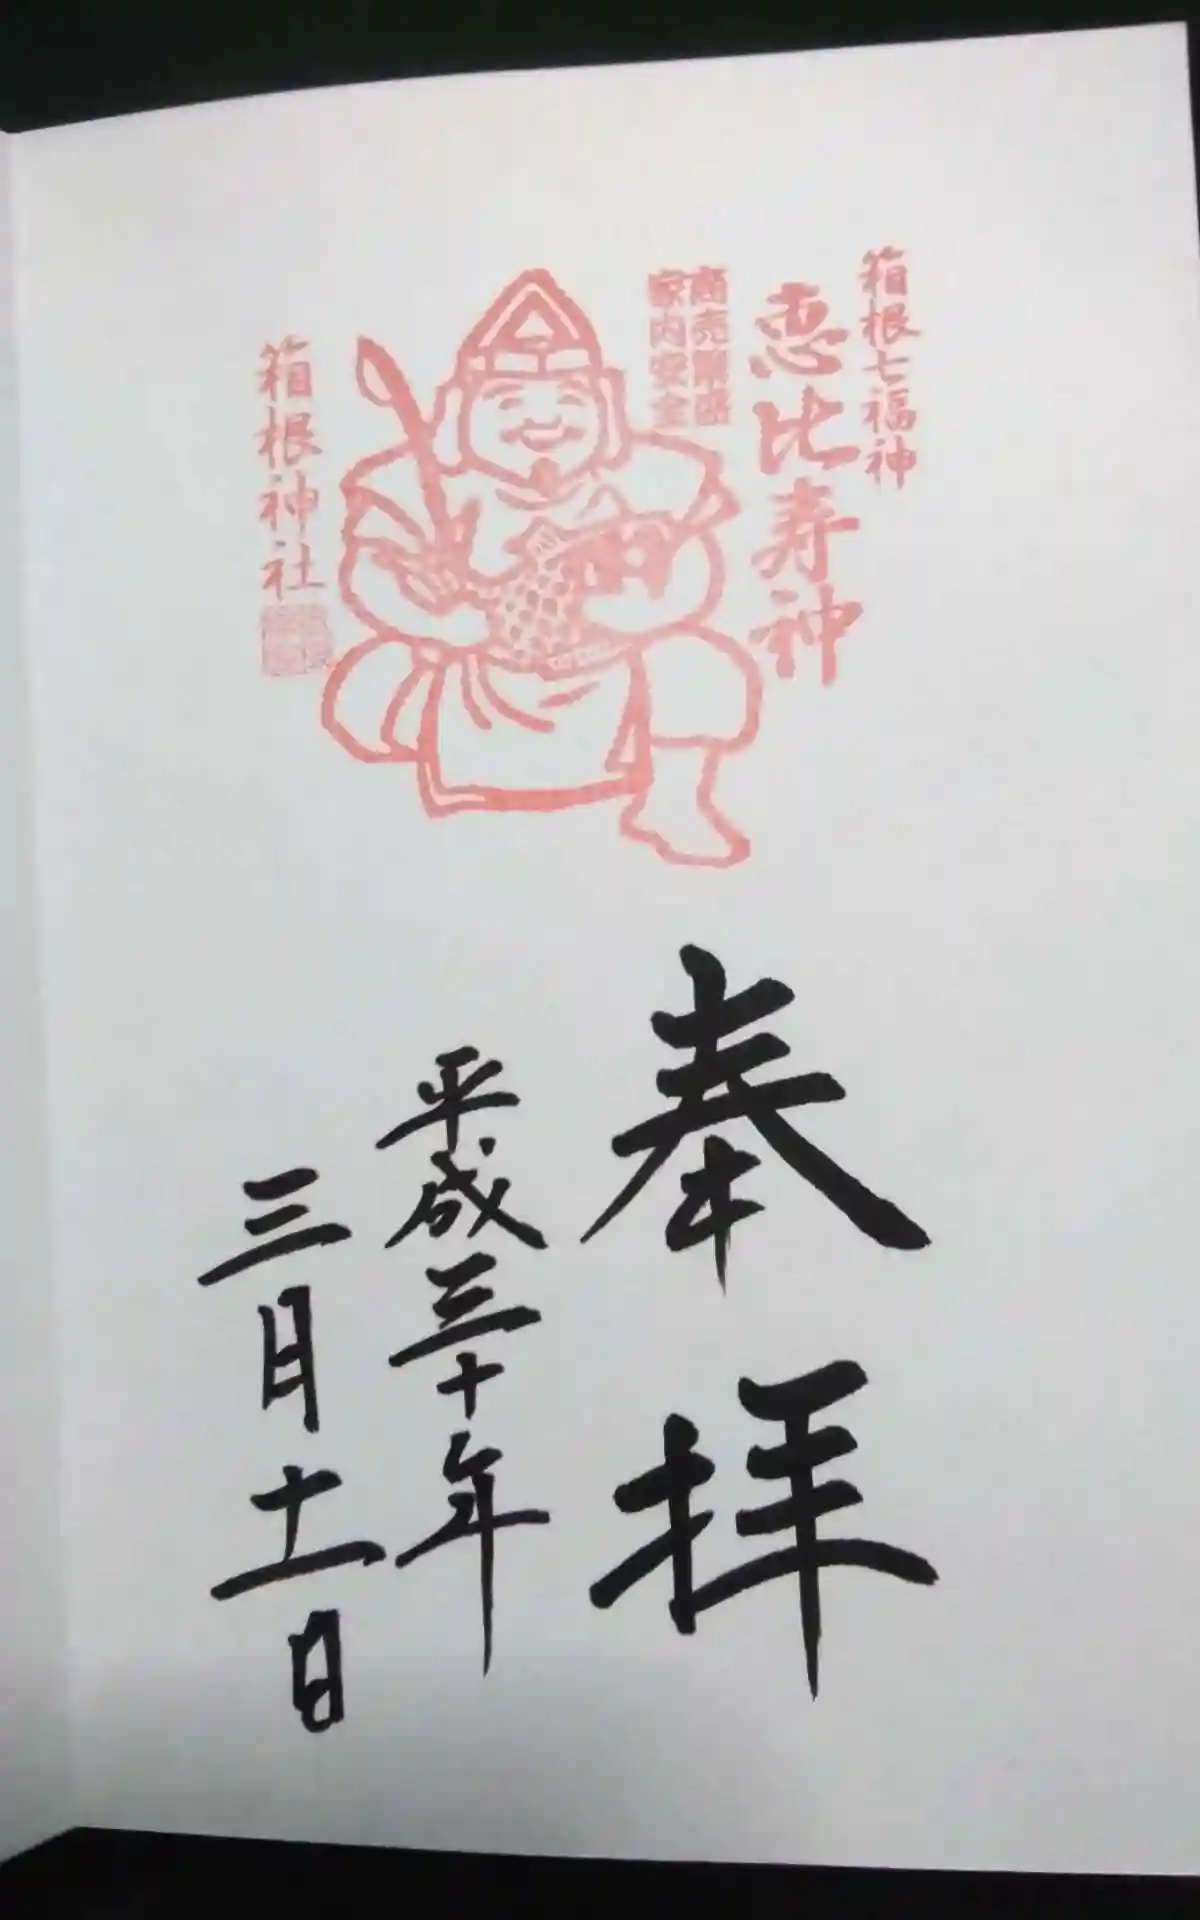 箱根七福神
恵比寿神
商売繁盛
家内安全
箱根神社
奉拝
平成三十年
三月十一日